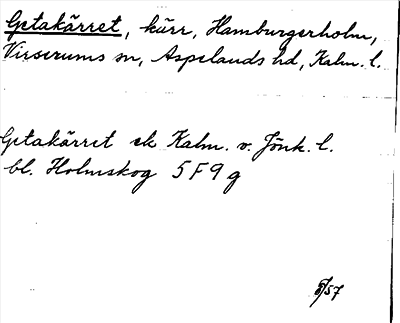 Getakärret, kärr, Hamburgerholm,
Virserums sn, Aspelands hd, Kalm. l.
Getakärret ek Kalm. v. Jönk. l.
bl. Holmskog 5 F 9 g
/57